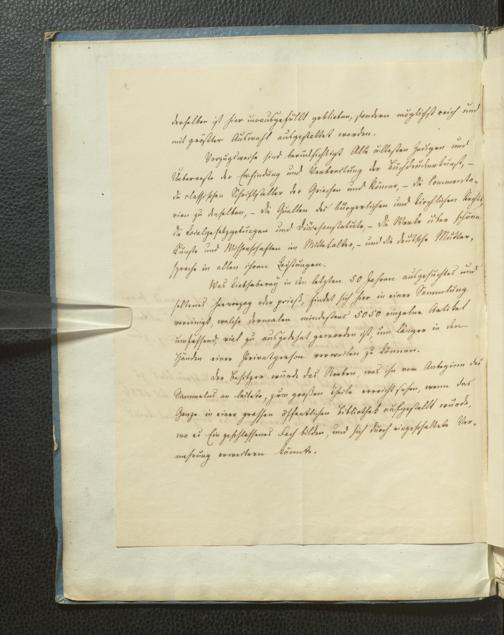 derselben ist hier unausgefüllt geblieben, sondern möglichst reich und
mit größter Auswahl ausgestattet worden.
Vorzugsweise sind berücksichtigt Alle ältesten Zeugen und
Ueberreste der Erfindung und Verbreitung der Buchdruckerkunst, –
die classischen Schriftsteller der Griechen und Römer, – die Commenta-
rien zu denselben, – die Quellen des bürgerlichen und kirchlichen Rechts,
die Lokalgesetzgebungen und Diöcesanstatute, – die Werke über schöne
Künste und Wissenschaften im Mittelalter, – und die deutsche Mutter-
sprache in allen ihren Leistungen.
Was Liebhaberey in den letzten 50 Jahren aufgesuchtes und
seltenes hervorzog oder prieß, findet sich hier in einer Sammlung
vereinigt, welche dermalen mindestens 5050 einzelne Artikel
umfassend, viel zu ausgedehnt geworden ist, um länger in den
Händen einer Privatperson verweilen zu können.
Der Besitzer würde das Streben, was ihn vom Anbeginn des
Sammelns an leitete, zum großen Theile erreicht sehen, wenn das
Ganze in einer grossen öffentlichen Bibliothek aufgestellt würde,
wo es Ein geschlossenes Fach bilden, und sich durch eingeschaltete Ver-
mehrung erweitern könnte.